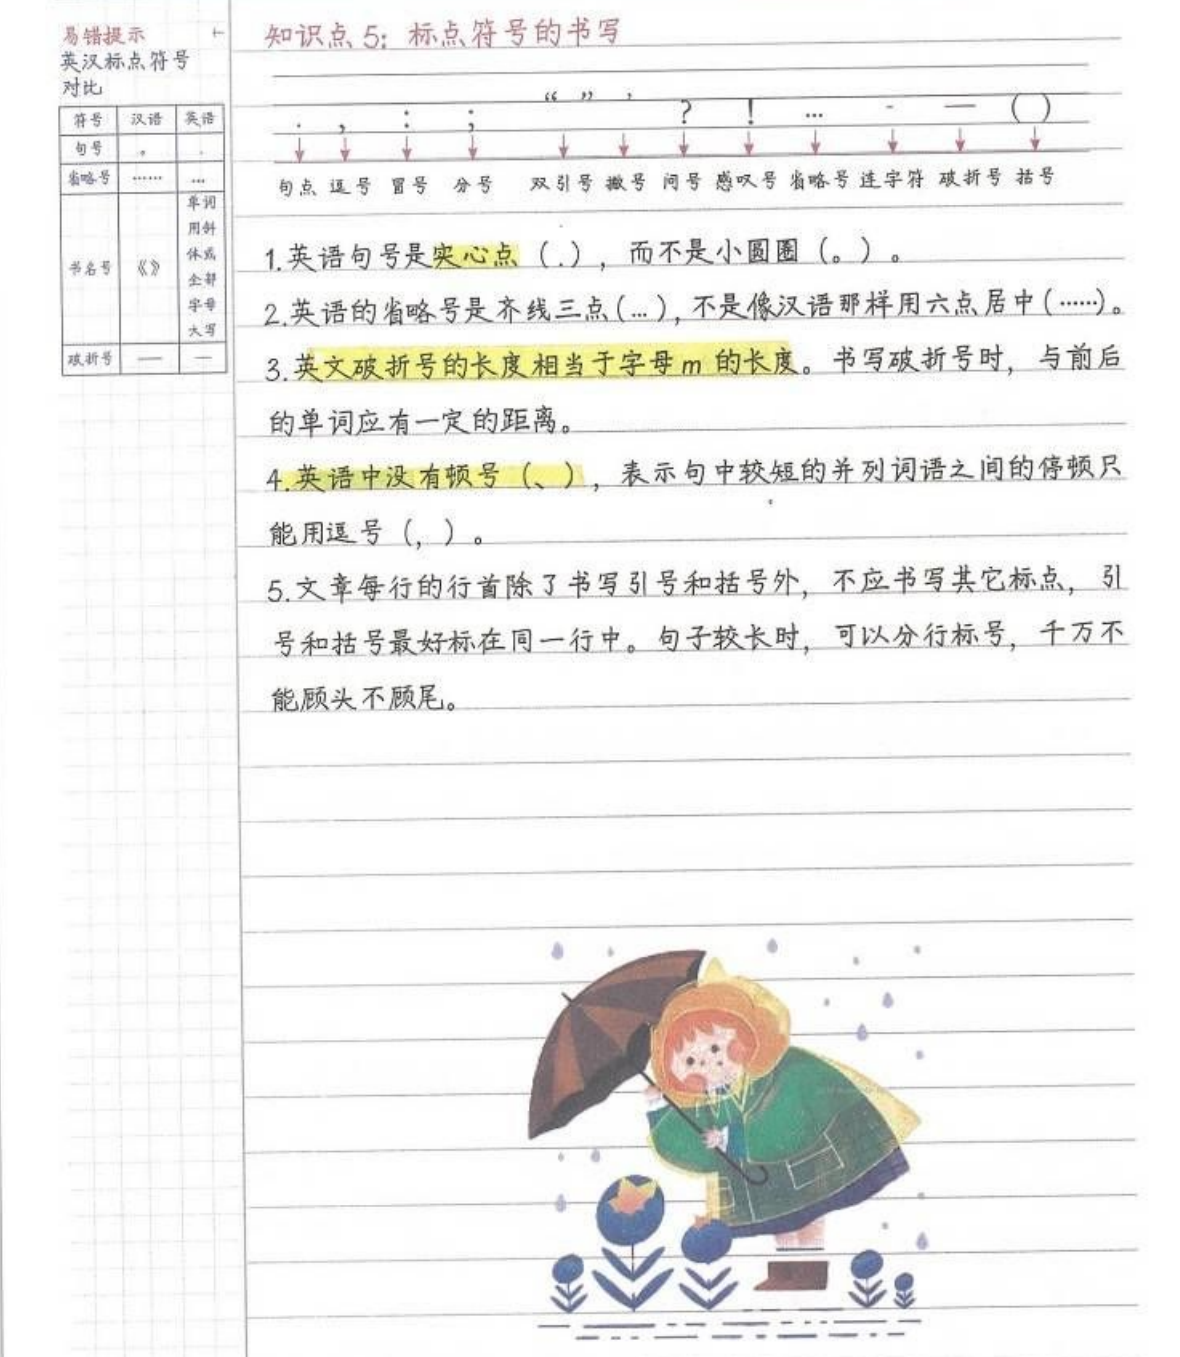 易错提示
英汉标点符号
对比
符号 汉语 英语
句号 。 .
省略号 …… …
书名号 《》 单词
用斜
体或
全部
字母
大写
破折号 — —
知识点 5：标点符号的书写
. , : ; “ ” ’ ? ! … - — ( )
句点 逗号 冒号 分号 双引号 撇号 问号 感叹号 省略号 连字符 破折号 括号
1.英语句号是实心点（.），而不是小圆圈（。）。
2.英语的省略号是齐线三点(…),不是像汉语那样用六点居中(……)。
3.英文破折号的长度相当于字母 m 的长度。书写破折号时，与前后
的单词应有一定的距离。
4.英语中没有顿号（、），表示句中较短的并列词语之间的停顿只
能用逗号（，）。
5.文章每行的行首除了书写引号和括号外，不应书写其它标点，引
号和括号最好标在同一行中。句子较长时，可以分行标号，千万不
能顾头不顾尾。